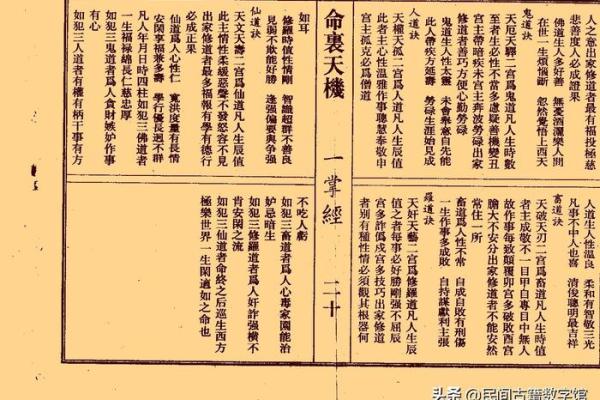 人之意出家修道者最有福投極慈
悲善度人必成證果
佛道生人多好善 無憂酒灑樂人間
在世一生煩惱斷 忽然覺悟上西天
鬼道訣
天厄天驛二宮爲鬼道凡人生時數
至者生必性不常多慮疑善機變丑
宮主帶暗疾未宮主奔波勞碌出家
修道者善巧方便心勤勞碌
鬼道生人性太靈 未會舉意自先能
此人帶疾方延壽 勞碌生涯始見成
人道訣
天權天孤二宮爲人道凡人生辰值
此者主心性溫雅作事聰慧奉敬申
宮主孤克必爲僧道
人道生人性溫良 柔和有智敬三光
凡事不中人也喜 清俊聰明最吉祥
畜道訣
天破天刃二宮爲畜道凡人生時值
者主成敗不一目甲自專目中無人
故作事每致顛覆卯宮多破敗酉宮
膽大不安分出家修道者不能安然
常住一所
畜道爲人性不常 自成自敗有刑傷
一生作事多成敗 自持謀獻利主張
羅道訣
天奸天藝二宮爲修羅道凡人生辰
值之者每事必好勝剛强不屈辰
宮多詐僞戌宮多技巧出家修道
者別有種性情必須觀其根器何
命裏天機 一掌經 二十
如耳
修羅時值性情剛 智識超群不善良
見弱不欺能好勝 逢强偏要與爭强
仙道訣
天文天壽二宮爲仙道凡人生辰值
此主情性柔緩惡聲不發怒容不見
出家修道者最多福報有學有德行
必成正果
仙道爲人心性仁 寬洪度量有長情
安閑享福兼多壽 學行優長逈不群
凡人年月日時四柱如犯三佛道者
一生福祿綿長仁慈忠厚
如犯三鬼道者爲人貪財嫉妒作事
有心
如犯三人道者有權有柄干事有方
不吃人虧
如犯三畜道者爲人心毒家園能治
妒忌暗生
如犯三修羅道者爲人奸詐强橫不
肯安閑之流
如犯三仙道者命終之后巡生西方
極樂世界一生閑適如之命也
头条 @民间古籍数字馆